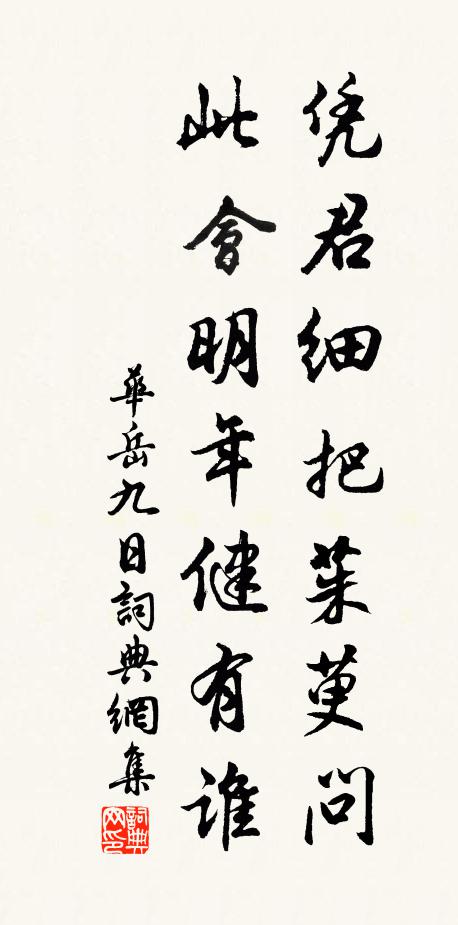 凭君细把茱萸问
此會明年健有谁
華岳九日詞典網集
詞典网印